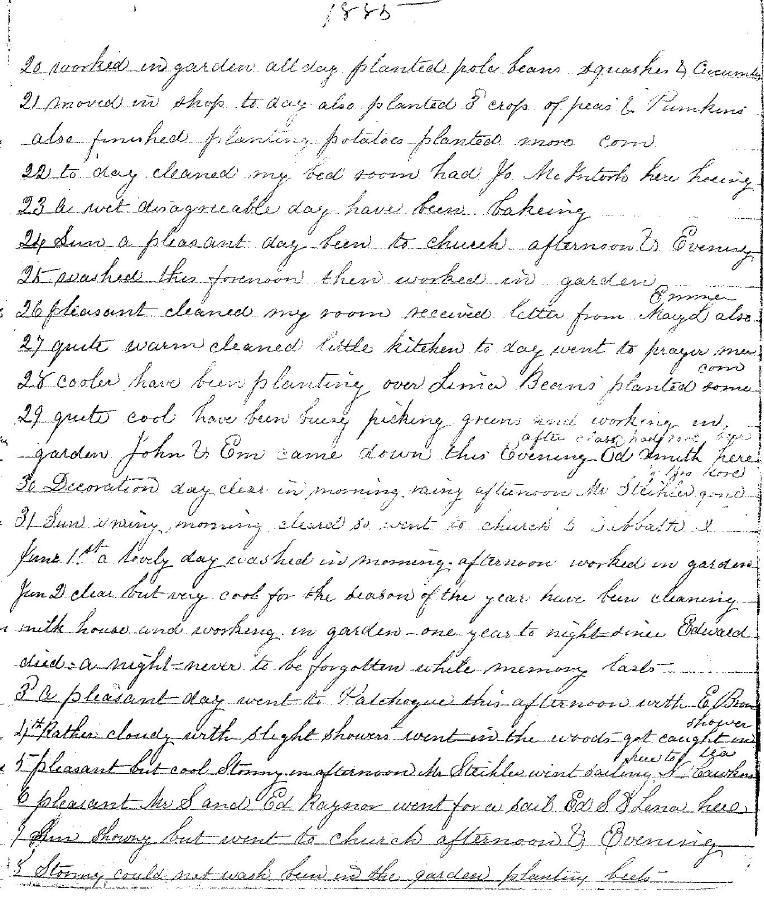 1885
20 worked in garden all day planted pole beans squashes & Cucumbe
21 moved in shop to day also planted 3 crop of peas & Pumkins
also finished planting potatoes planted more corn
22 to day cleaned my bed room had Jo McIntosh here hoeing
23 a wet disagreeable day have been bakeing
24 Sun a pleasant day been to church afternoon & Evening
25 washed this forenoon then worked in garden
Emmer
26 pleasant cleaned my room received letter from May & also
27 quite warm cleaned little kitchen to day went to prayer mee
corn
28 cooler have been planting over Lima Beans planted some
29 quite cool have been busy picking greens and working in
after class
garden John & Em came down this Evening Ed Smith here
30 Decoration day clear in morning rainy afternoon Mr Steihler gone
31 Sun rainy morning cleard so went to church & Sabbath S
June 1st a lovely day washed in morning afternoon worked in garden
Jun 2 clear but very cool for the season of the year have been cleaning
milk house and working in garden - one year to night since Edward
died - a night never to be forgotten while memory lasts
3 a pleasant day went to Patchogue this afternoon with E
shower
4th Rather cloudy with slight showers went in the woods got caught in
to tea
5 pleasant but cool Stormy in afternoon Mr Steihler went sailing
6 pleasant Mr S and Ed Raynor went for a sail Ed S & Lena here
7 Sun Showry but went to church afternoon & Evening
8 Stormy could not wash been in the garden planting beets